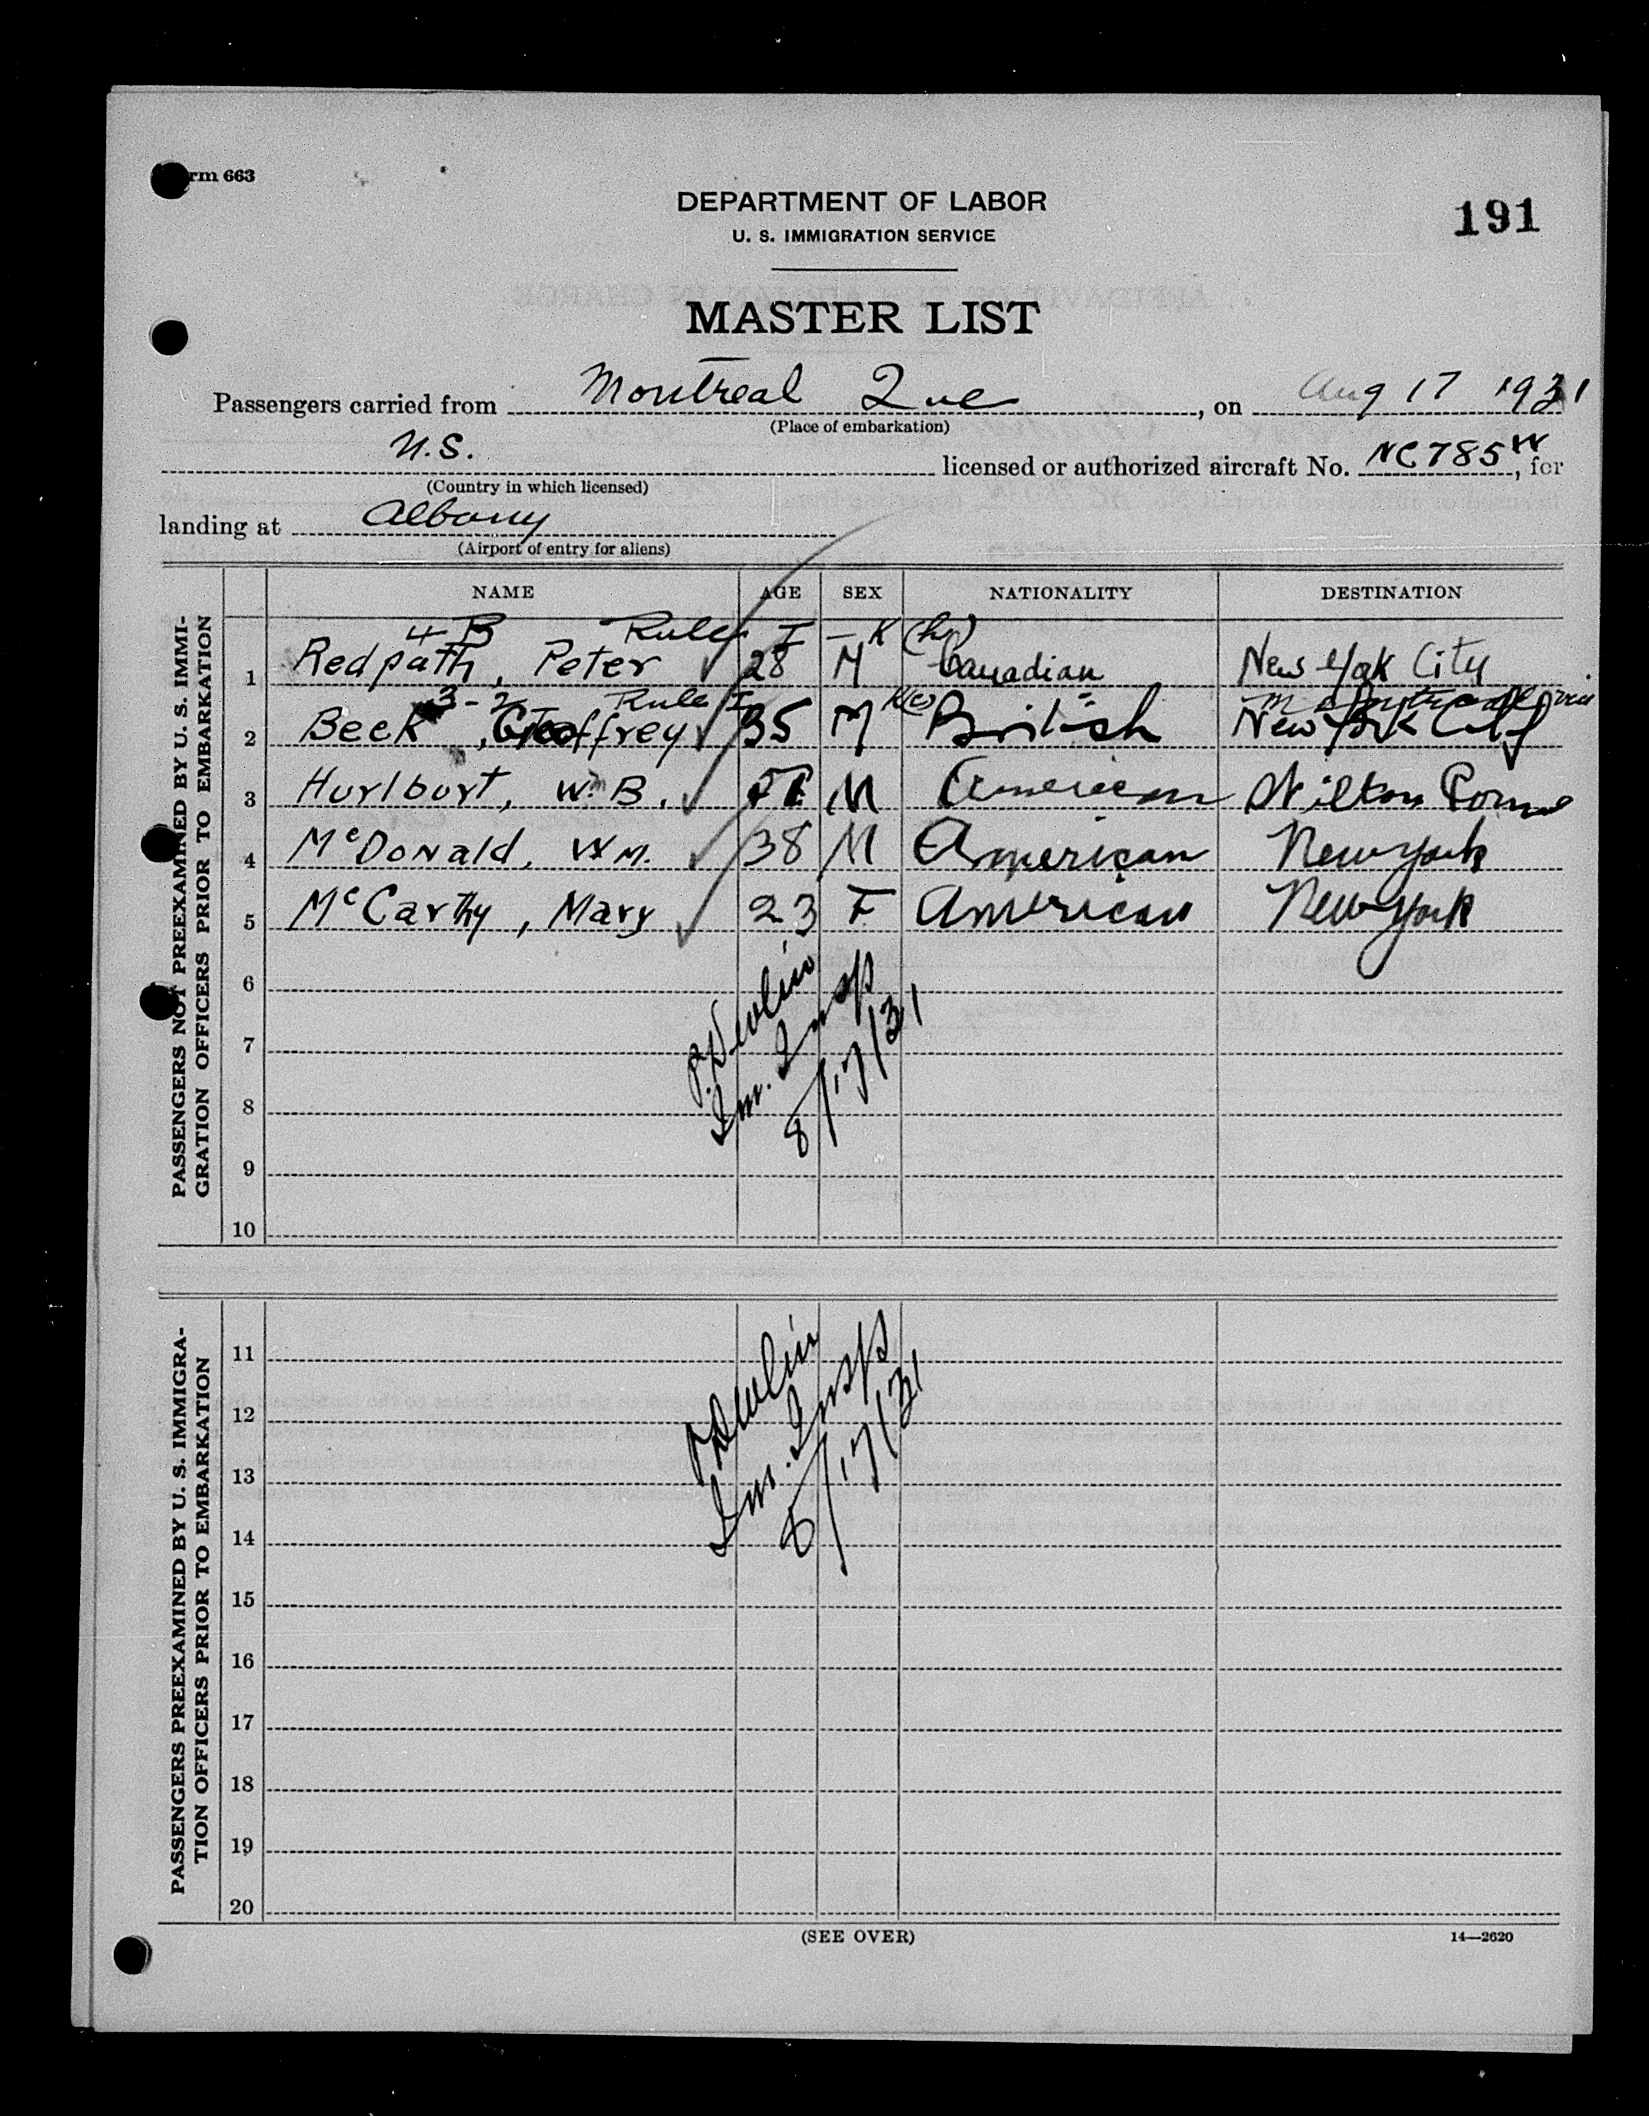 rm 663
191
DEPARTMENT OF LABOR
U. S. IMMIGRATION SERVICE
MASTER LIST
Passengers carried from Montreal Que, on Aug 17 1931
(Place of embarkation)
U.S. licensed or authorized aircraft No. NC785W, for
(Country in which licensed)
landing at Albany
(Airport of entry for aliens)
PASSENGERS NOT PREEXAMINED BY U. S. IMMI-
GRATION OFFICERS PRIOR TO EMBARKATION
NAME AGE SEX NATIONALITY DESTINATION
4-B Rule I - K
1 Redpath, Peter 28 M Canadian New York City
3-2 Rule I
2 Beck, Geoffrey 35 M British New York City
3 Hurlburt, Wm B. M American Wilton Conn
4 McDonald, Wm. 38 M American New York
5 McCarthy, Mary 23 F American New York
6
7
8
9
10
P. Devlin
Im. Insp
8/17/31
PASSENGERS PREEXAMINED BY U. S. IMMIGRA-
TION OFFICERS PRIOR TO EMBARKATION
11
12
13
14
15
16
17
18
19
20
P Devlin
Im. Insp
8/17/31
(SEE OVER)
14—2620